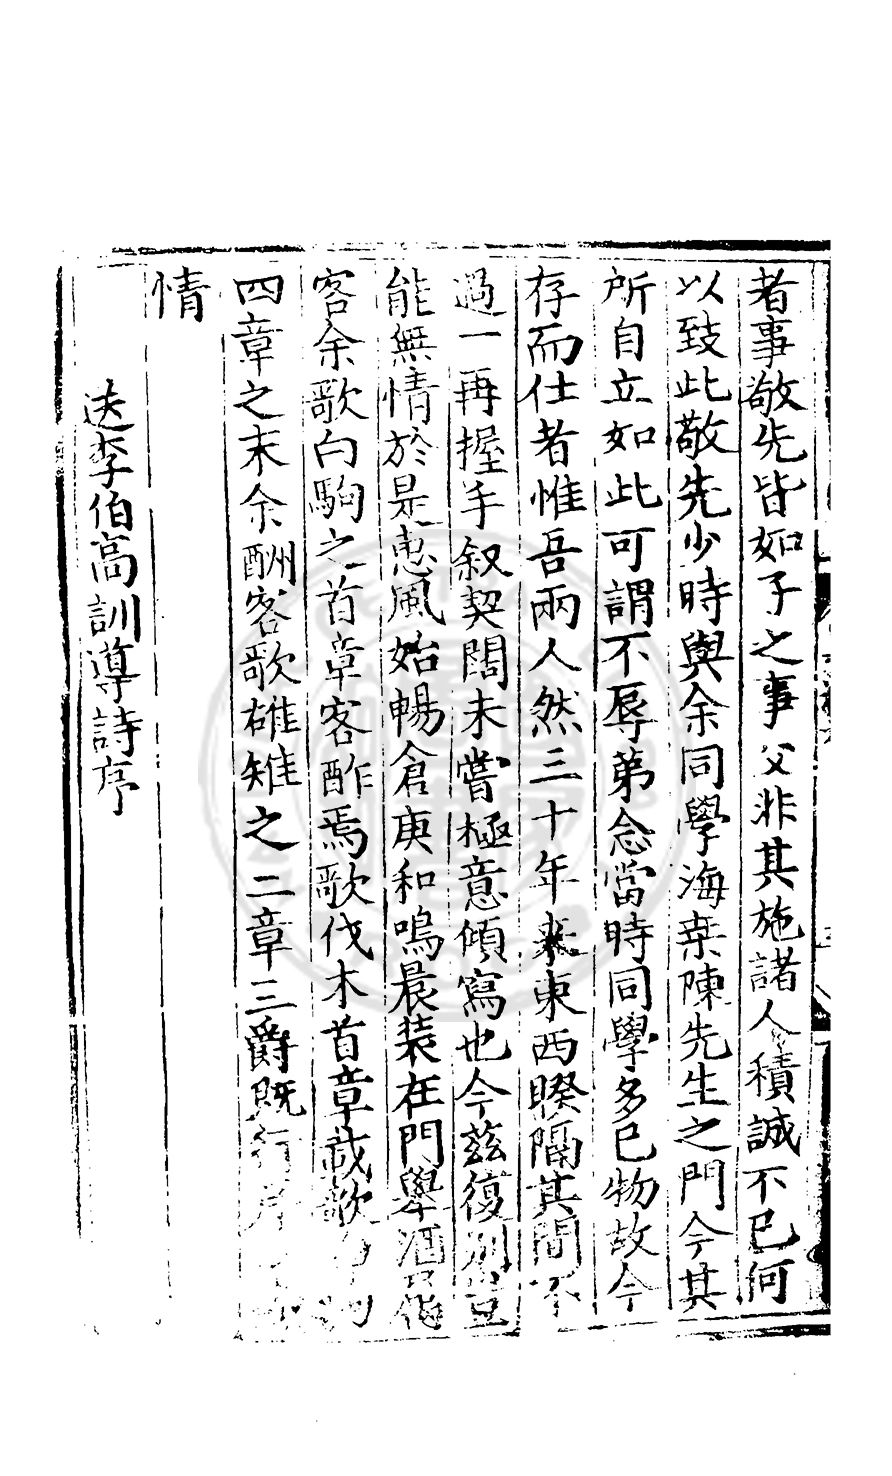 者事敬先皆如子之事父非其施諸人積誠不已何
以致此敬先少時與余同學海桒陳先生之門今其
所自立如此可謂不辱第念當時同學多已物故今
存而仕者惟吾兩人然三十年来東西暌隔其間不
過一再握手叙契闊未嘗極意傾寫也今茲復別豈
能無情於是惠風始暢倉庚和鳴晨装在門舉酒屬
客余歌白駒之首章客酢焉歌伐木首章或歌白駒
四章之末余酬客歌雄雉之二章三爵既行
情
送李伯高訓導詩序